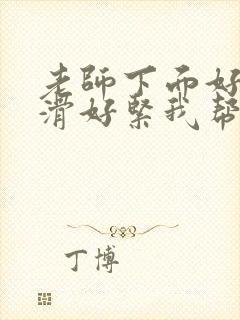 老師下面好
滑好緊我幫
丁博